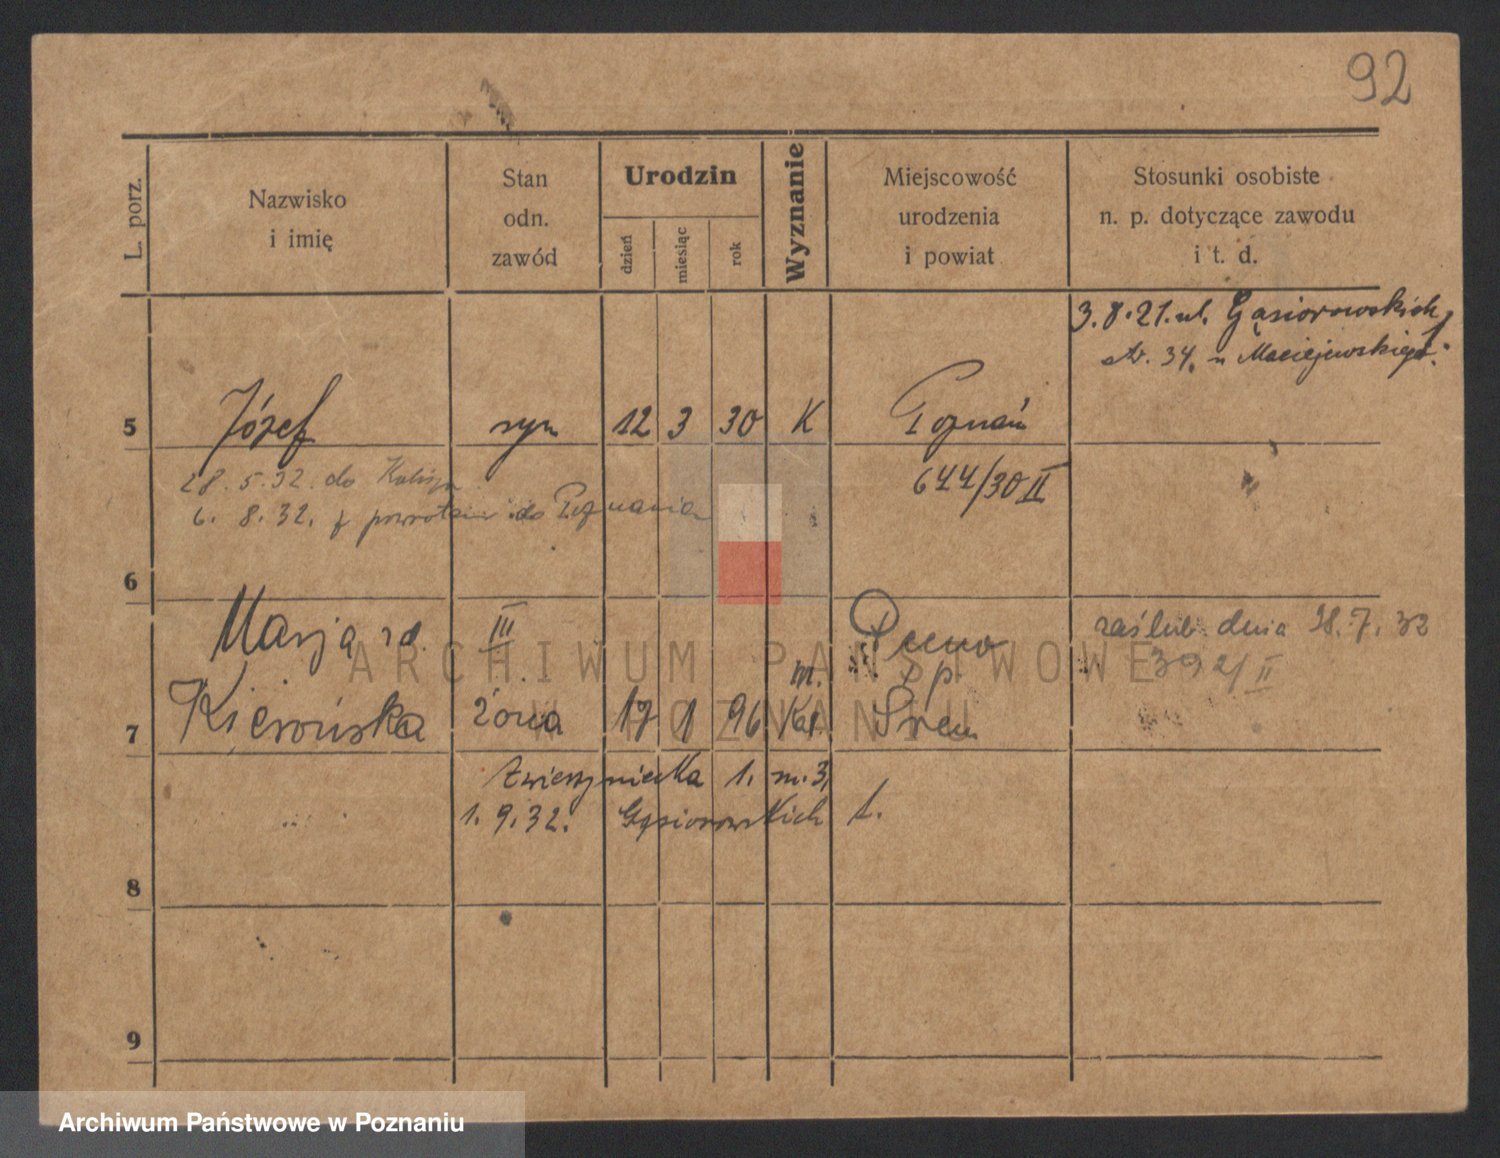 92
L. porz.
Nazwisko
i imię
Stan
odn.
zawód
Urodzin
dzień
miesiąc
rok
Wyznanie
Miejscowość
urodzenia
i powiat
Stosunki osobiste
n. p. dotyczące zawodu
i t. d.
3.8.21. ul. Gąsiorowskich
34, u Maciejewskiego.
5 Józef syn 12 3 30 K Poznań
644/30 II
28.5.32. do Kalisza
6. 8.32. z powrotem do Poznania
6
Marja rd. III zaślub. dnia 28.7.32
392/II
Kierońska żona 17 1 96 Kat. Śrem
7
Zwierzyniecka 1. m. 3,
1.9.32. Gąsiorowskich
8
9
ARCHIWUM PAŃSTWOWE
W POZNANIU
Archiwum Państwowe w Poznaniu